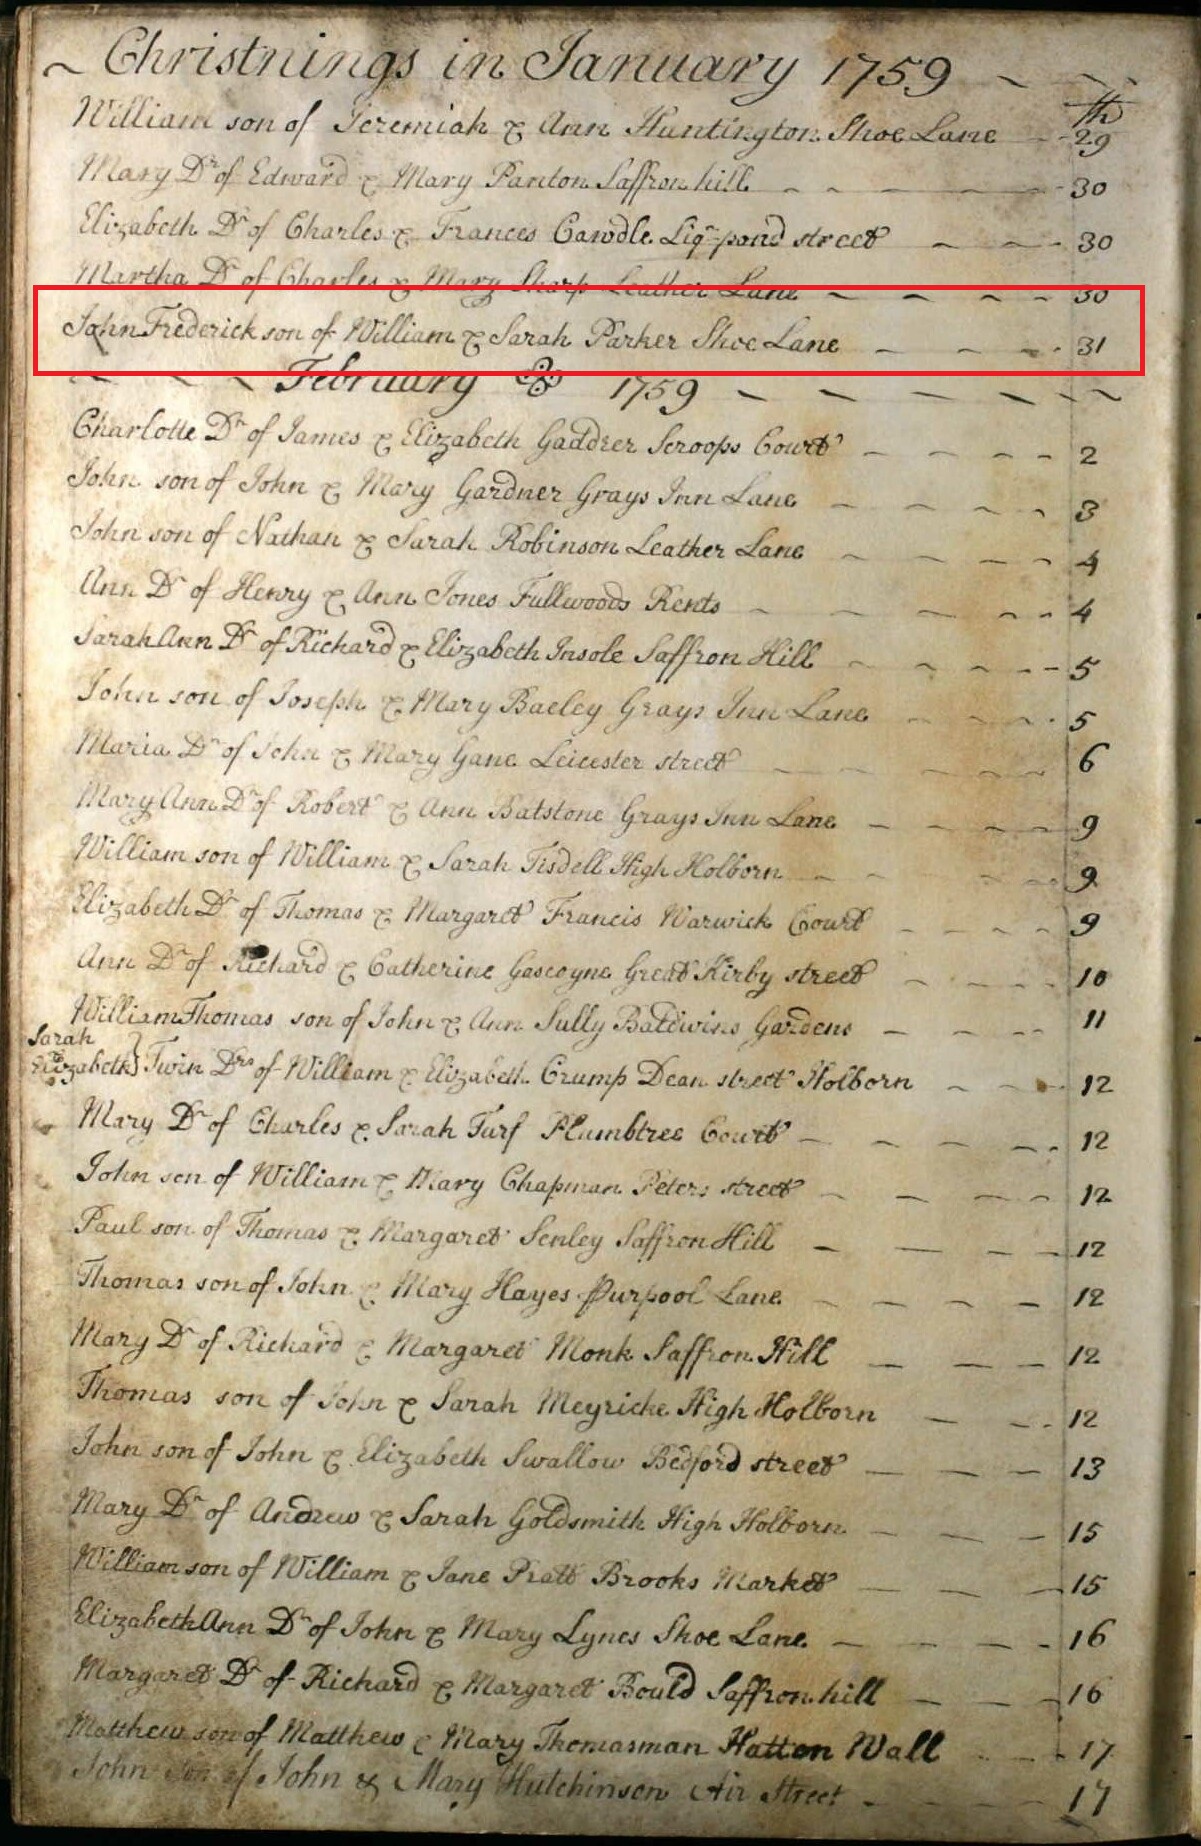 ~ Christnings in January 1759 ~ ~
th
William son of Jeremiah & Ann Huntington Shoe Lane - - 29
Mary Dr of Edward & Mary Panton Saffron hill - - - 30
Elizabeth Dr of Charles & Frances Cawdle Liqr pond street - - - 30
Martha Dr of Charles & Mary Sharp Leather Lane - - - - 30
John Frederick son of William & Sarah Parker Shoe Lane - - - - 31
~ ~ ~ February 1759 ~ ~ ~ ~ ~ ~
Charlotte Dr of James & Elizabeth Gaddrer Scroops Court - - - - - 2
John son of John & Mary Gardner Grays Inn Lane - - - - - 3
John son of Nathan & Sarah Robinson Leather Lane - - - - - 4
Ann Dr of Henry & Ann Jones Fullwoods Rents - - - - - - 4
Sarah Ann Dr of Richard & Elizabeth Insole Saffron Hill - - - - - 5
John son of Joseph & Mary Baeley Grays Inn Lane - - - - 5
Maria Dr of John & Mary Gane Leicester street - - - - - - 6
Mary Ann Dr of Robert & Ann Batstone Grays Inn Lane - - - - - 9
William son of William & Sarah Tisdell High Holborn - - - - - 9
Elizabeth Dr of Thomas & Margaret Francis Warwick Court - - - - 9
Ann Dr of Richard & Catherine Gascoyne Great Kirby street - - - - 10
William Thomas son of John & Ann Sully Baldwins Gardens - - - - 11
Sarah
Elizabeth } Twin Drs of William & Elizabeth Crump Dean street Holborn - - - 12
Mary Dr of Charles & Sarah Turf Plumbtree Court - - - - - - 12
John son of William & Mary Chapman Peters street - - - - - 12
Paul son of Thomas & Margaret Senley Saffron Hill - - - - 12
Thomas son of John & Mary Hayes Purpool Lane - - - - - 12
Mary Dr of Richard & Margaret Monk Saffron Hill - - - 12
Thomas son of John & Sarah Meyricke High Holborn - - - 12
John son of John & Elizabeth Swallow Bedford street - - - - 13
Mary Dr of Andrew & Sarah Goldsmith High Holborn - - - 15
William son of William & Jane Pratt Brooks Market - - - - 15
Elizabeth Ann Dr of John & Mary Lynes Shoe Lane - - - - - 16
Margaret Dr of Richard & Margaret Bould Saffron hill - - - 16
Matthew son of Matthew & Mary Thomasman Hatton Wall - - - 17
John son of John & Mary Hutchinson Air Street - - - - 17